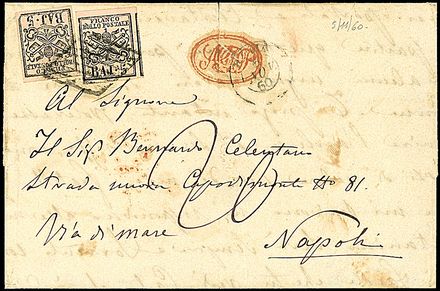 BAJ. 5
FRANCO
BOLLO POSTALE
BAJ. 5
5/11/60.
60
Al Signore
Il Sig. Bernardo Celentan
Strada nuova Capodimonte No 81.
Via di mare
Napoli